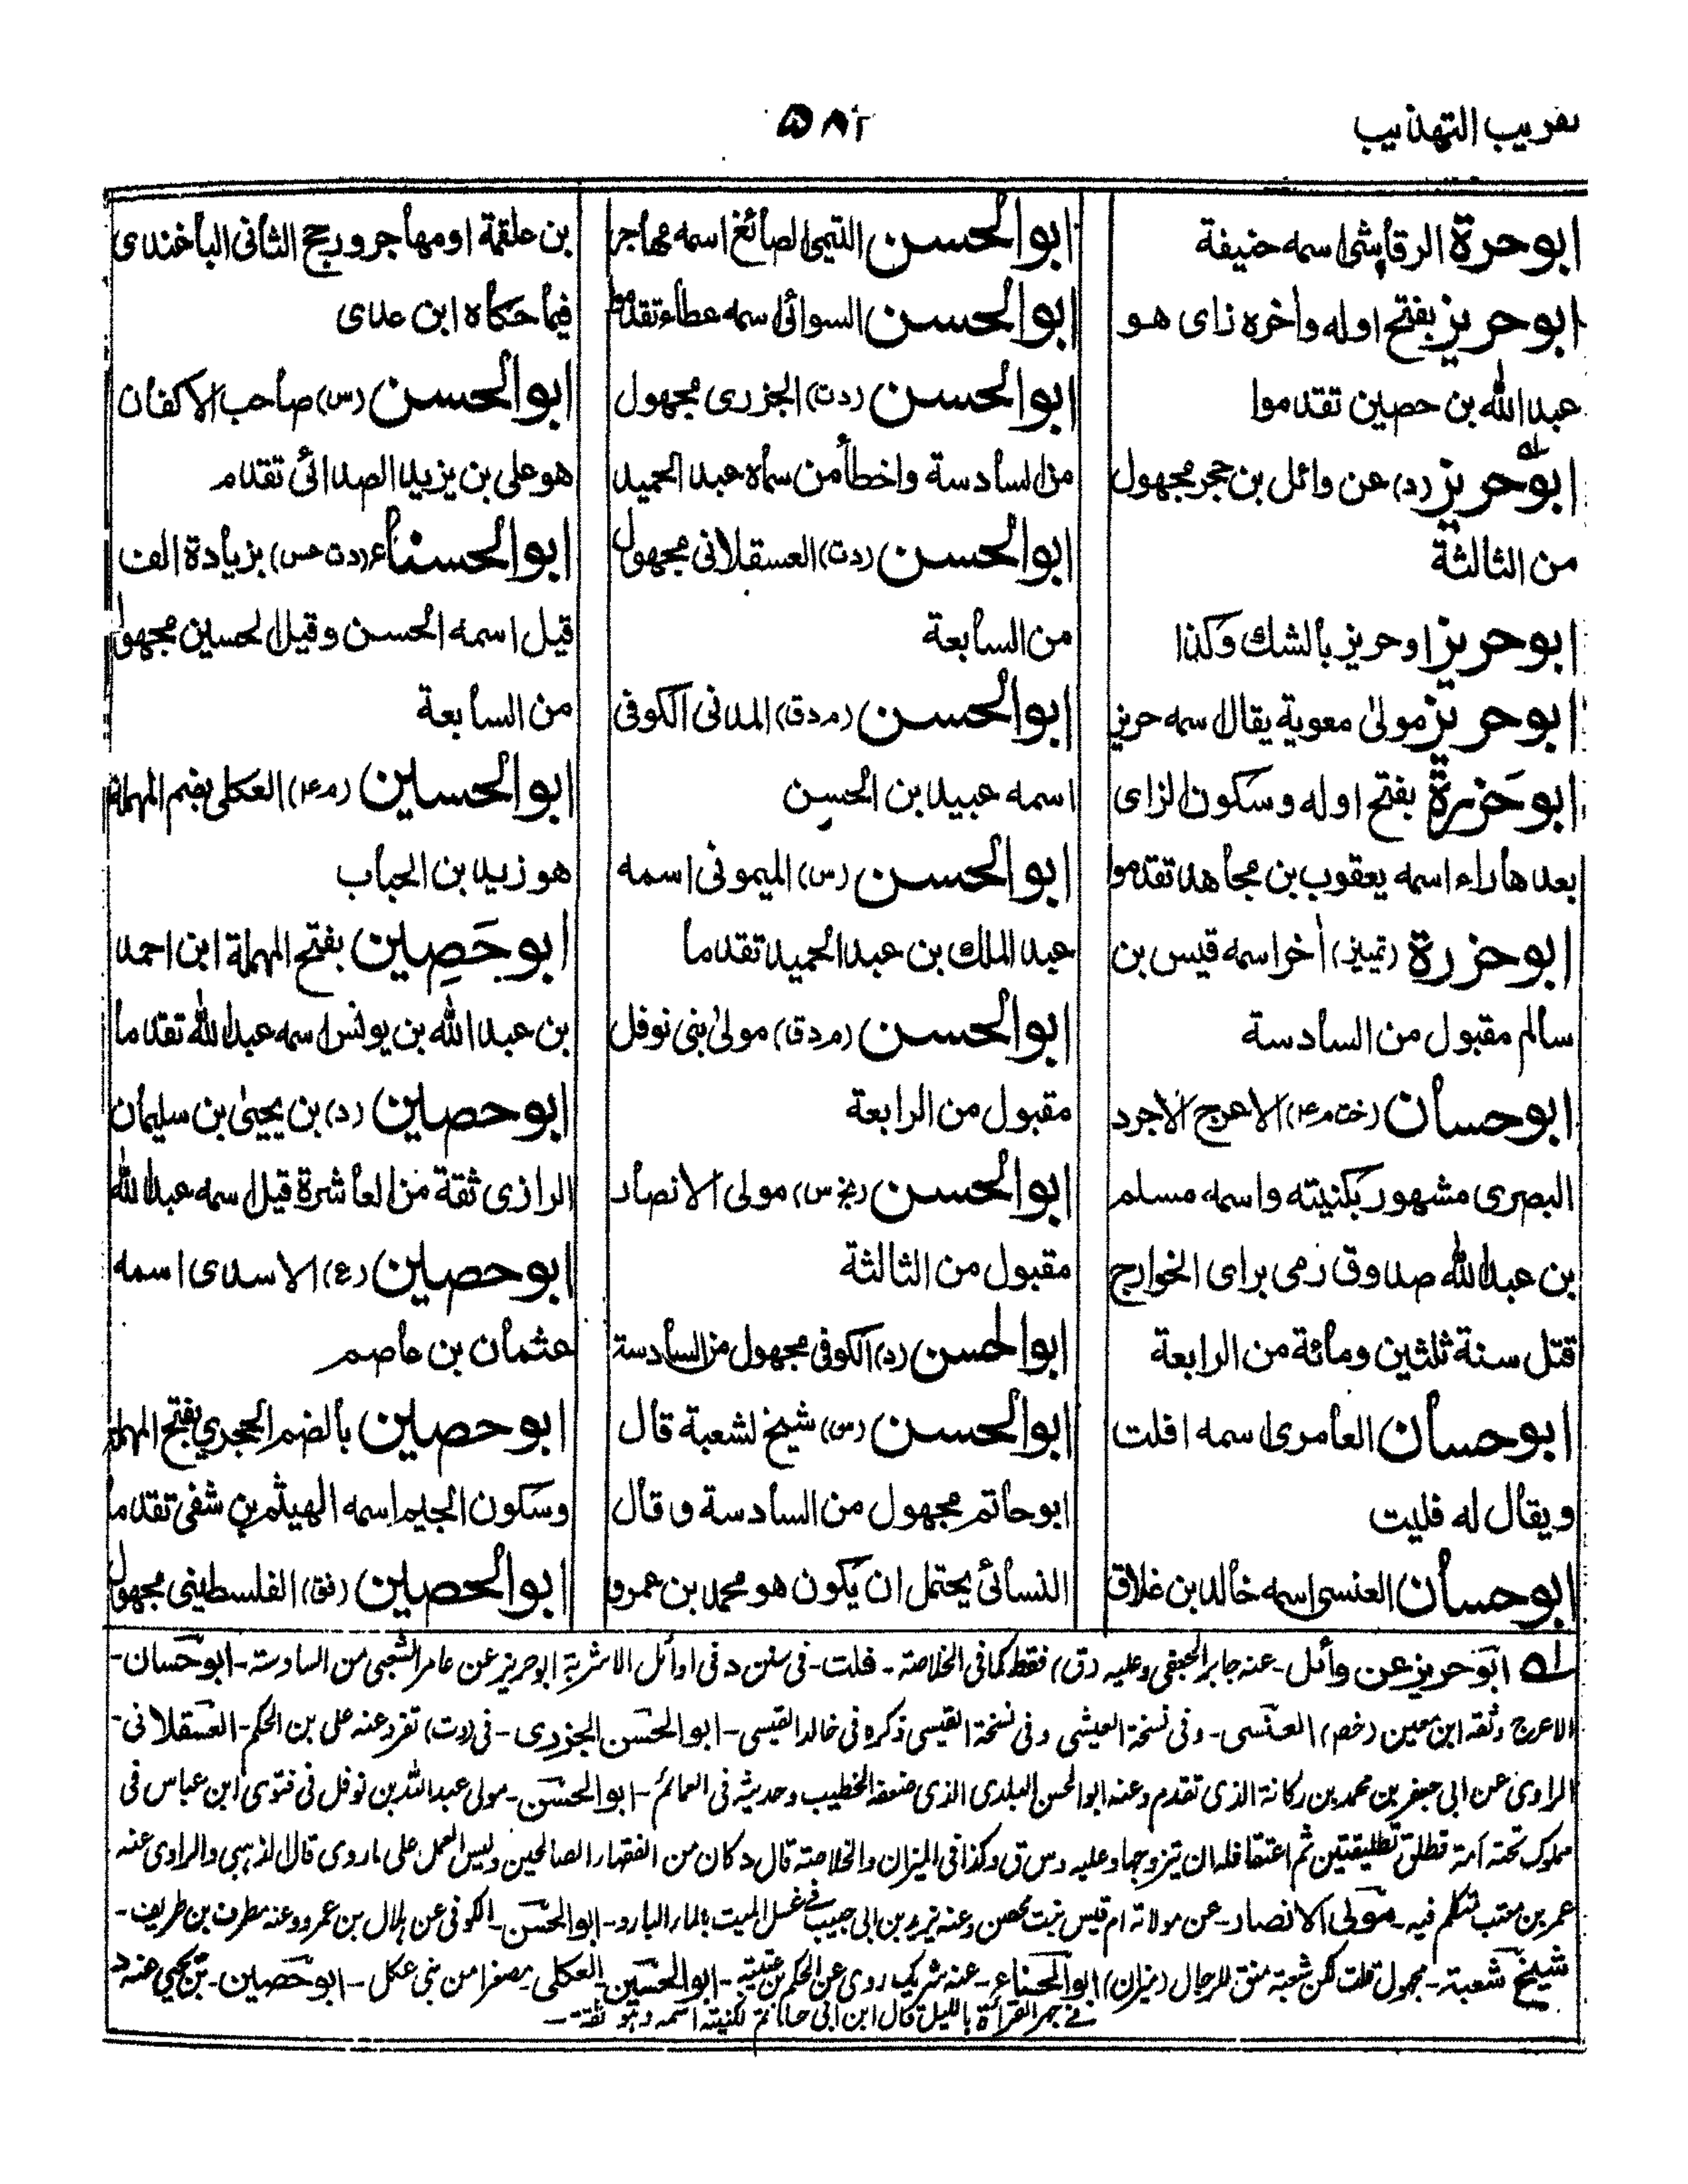 تقريب التهذيب
۵۸۲
ابوحرة الرقاشى اسمه حنيفة
ابوحريز بفتح اوله وأخره زاى هو
عبدالله بن حصين تقدموا
ابوحريز (د) عن وائل بن حجر مجهول
من الثالثة
ابوحريز اوحريز بالشك وكذا
ابوحريز مولى معوية يقال اسمه حريز
ابوحَزرة بفتح اوله وسكون الزاى
بعدها راء اسمه يعقوب بن مجاهد تقدموا
ابوحزرة (تمييز) أخر اسمه قيس بن
سالم مقبول من السادسة
ابوحسان (خت م ۴) الاعرج الاجرد
البصرى مشهور بكنيته واسمه مسلم
بن عبدالله صدوق رمى براى الخوارج
قتل سنة ثلثين ومائة من الرابعة
ابوحسان العامرى اسمه افلت
ويقال له فليت
ابوحسان العنسى اسمه خالد بن غلاق
ابوالحسن التيمى الصائغ اسمه مهاجر
ابوالحسن السوائى اسمه عطاء تقدما
ابوالحسن (دت) الجزرى مجهول
من السادسة واخطأ من سماه عبد الحميد
ابوالحسن (دت) العسقلانى مجهول
من السابعة
ابوالحسن (م د ق) المدنى الكوفى
اسمه عبيد بن الحسن
ابوالحسن (س) الميمونى اسمه
عبد الملك بن عبد الحميد تقدما
ابوالحسن (م د ق) مولى بنى نوفل
مقبول من الرابعة
ابوالحسن (بخ س) مولى الانصار
مقبول من الثالثة
ابوالحسن (د) الكوفى مجهول من السادسة
ابوالحسن (س) شيخ لشعبة قال
ابوحاتم مجهول من السادسة وقال
النسائى يحتمل ان يكون هو محمد بن عمرو
بن علقمة اومهاجر ورجح الثانى الباغندى
فيما حكاه ابن عدى
ابوالحسن (س) صاحب الاكفان
هو على بن يزيد الصدائى تقدم
ابوالحسناء (دت عس) بزيادة الف
قيل اسمه الحسن وقيل الحسين مجهول
من السابعة
ابوالحسين (م ۴) العكلى بضم المهملة
هو زيد بن الحباب
ابوحَصِين بفتح المهملة ابن احمد
بن عبدالله بن يونس اسمه عبدالله تقدما
ابوحصين (د) بن يحيى بن سليمان
الرازى ثقة من العاشرة قيل اسمه عبدالله
ابوحصين (ع) الاسدى اسمه
عثمان بن عاصم
ابوحصين بالضم الحجرى بفتح المهملة
وسكون الجيم اسمه الهيثم بن شفى تقدما
ابوالحصين (فق) الفلسطينى مجهول
له ابوحريز عن وائل - عنه جابر الجعفى وعليه (دق) فقط كما فى الخلاصة - قلت - فى سنن د فى اوائل الاشربة ابوحريز عن عامر الشعبى من السادسة - ابوحسان -
الاعرج وثقه ابن معين (خص) العنسى - وفى نسخة العيشى وفى نسخة القيسى ذكره فى خالد القيسى - ابوالحسن الجزرى - فى (دت) تفرد عنه على بن الحكم - العسقلانى -
الراوى عن ابى جعفر بن محمد بن ركانة الذى تقدم وعنه ابوالحسن البلدى الذى ضعفه الخطيب وحديثه فى العمائم - ابوالحسن - مولى عبدالله بن نوفل فى فتوى ابن عباس فى
مملوك تحته امة فطلق تطليقتين ثم اعتقا فله ان يتزوجها وعليه د س ق وكذا فى الميزان والخلاصة قال د كان من الفقهاء الصالحين وليس العمل على ما روى قال الذهبى والراوى عنه
عمر بن معتب تكلم فيه - مولى الانصار - عن مولاته ام قيس بنت محصن وعنه يزيد بن ابى حبيب فى غسل الميت بالماء البارد - ابوالحسن - الكوفى عن هلال بن عمرو وعنه مطرف بن طريف -
شيخ شعبة - مجهول قلت لكن شعبة منق للرجال (ميزان) ابوالحسناء - عنه شريك روى عن الحكم بن عتيبة - ابوالحسين - العكلى - مصغرا من بنى عكل - ابوحصين - بن يحيى عنه د
فى جهر القرأة بالليل قال ابن ابى حاتم كنيته اسمه وهو ثقة -